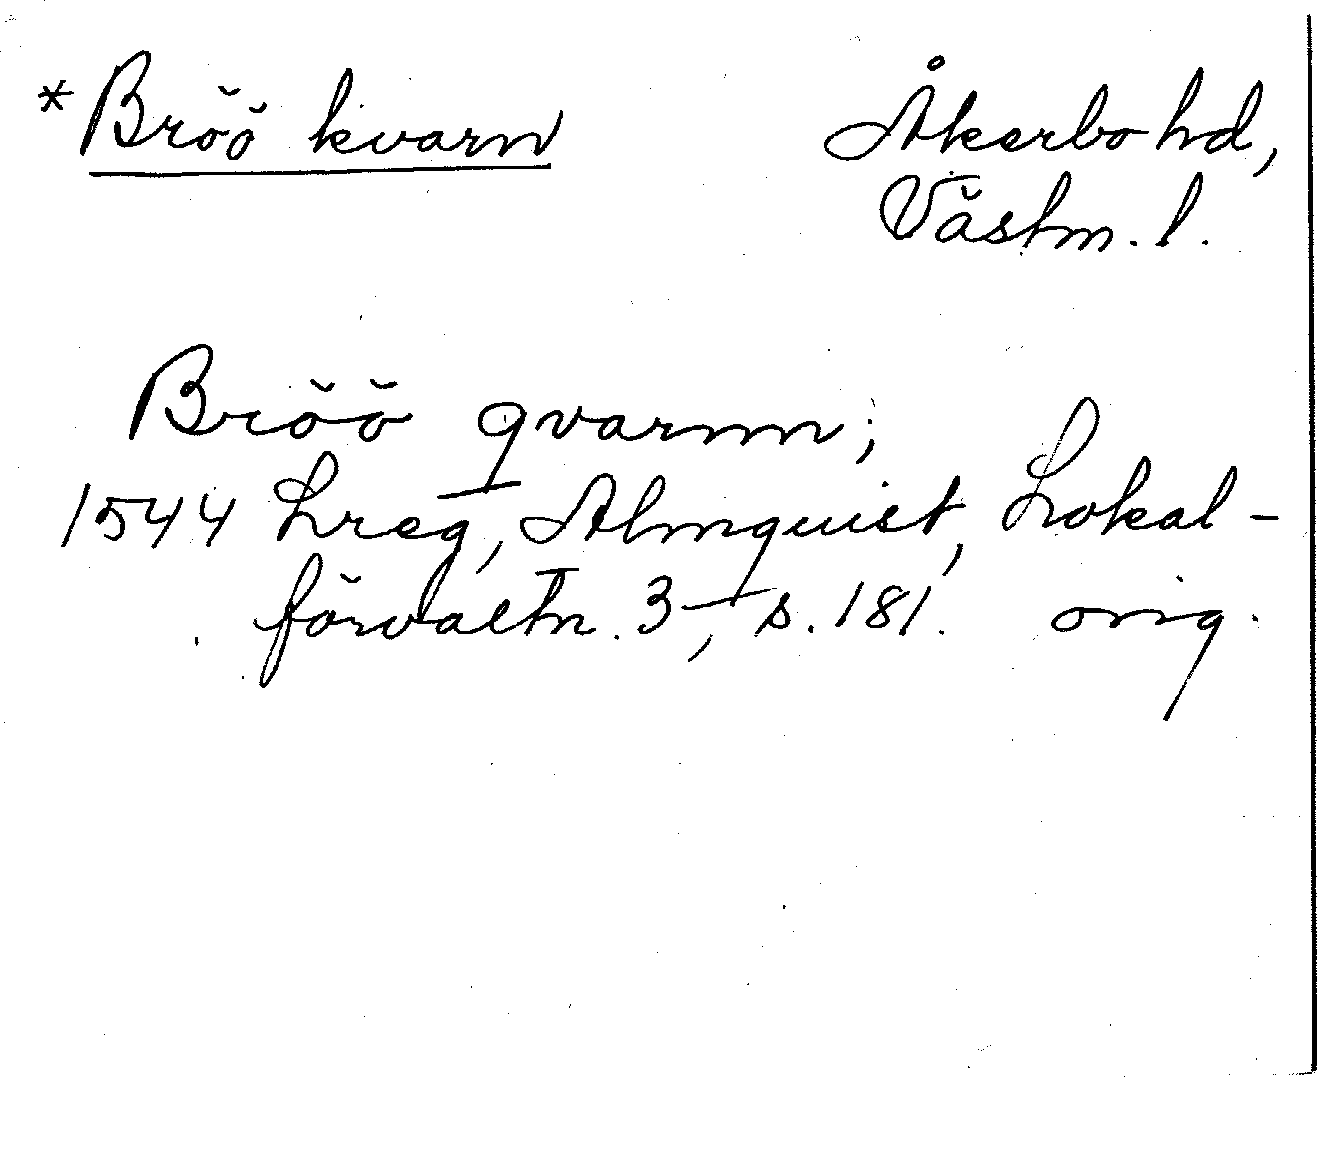 *Bröö kvarn
Åkerbo hd,
Västm. l.
Bröö qvarnn;
1544 Lreg, Almquist, Lokal-
förvaltn. 3, s. 181. orig.